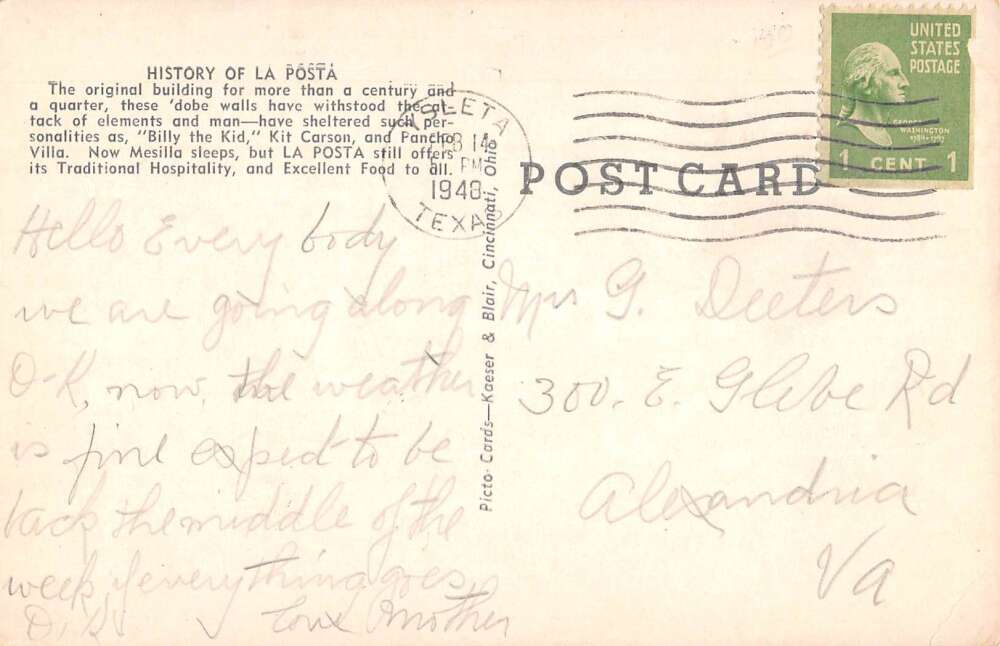 HISTORY OF LA POSTA
The original building for more than a century and
a quarter, these 'dobe walls have withstood the at-
tack of elements and man—have sheltered such per-
sonalities as, "Billy the Kid," Kit Carson, and Pancho
Villa. Now Mesilla sleeps, but LA POSTA still offers
its Traditional Hospitality, and Excellent Food to all.
YSLETA
FEB 14
PM
1948
TEXAS
UNITED
STATES
POSTAGE
GEORGE
WASHINGTON
1789-1797
1 CENT 1
POST CARD
Picto-Cards—Kaeser & Blair, Cincinnati, Ohio
Hello Every body
we are going along
O-K, now, the weather
is fine expect to be
back the middle of the
week if everything goes
O.K. Love Mother
Mrs G. Deeters
300. E. Glebe Rd
Alexandria
Va